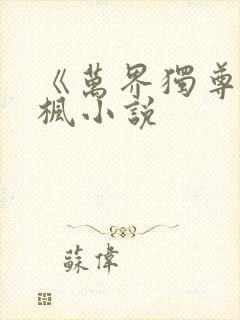 《萬界獨尊
楓小說
蘇偉